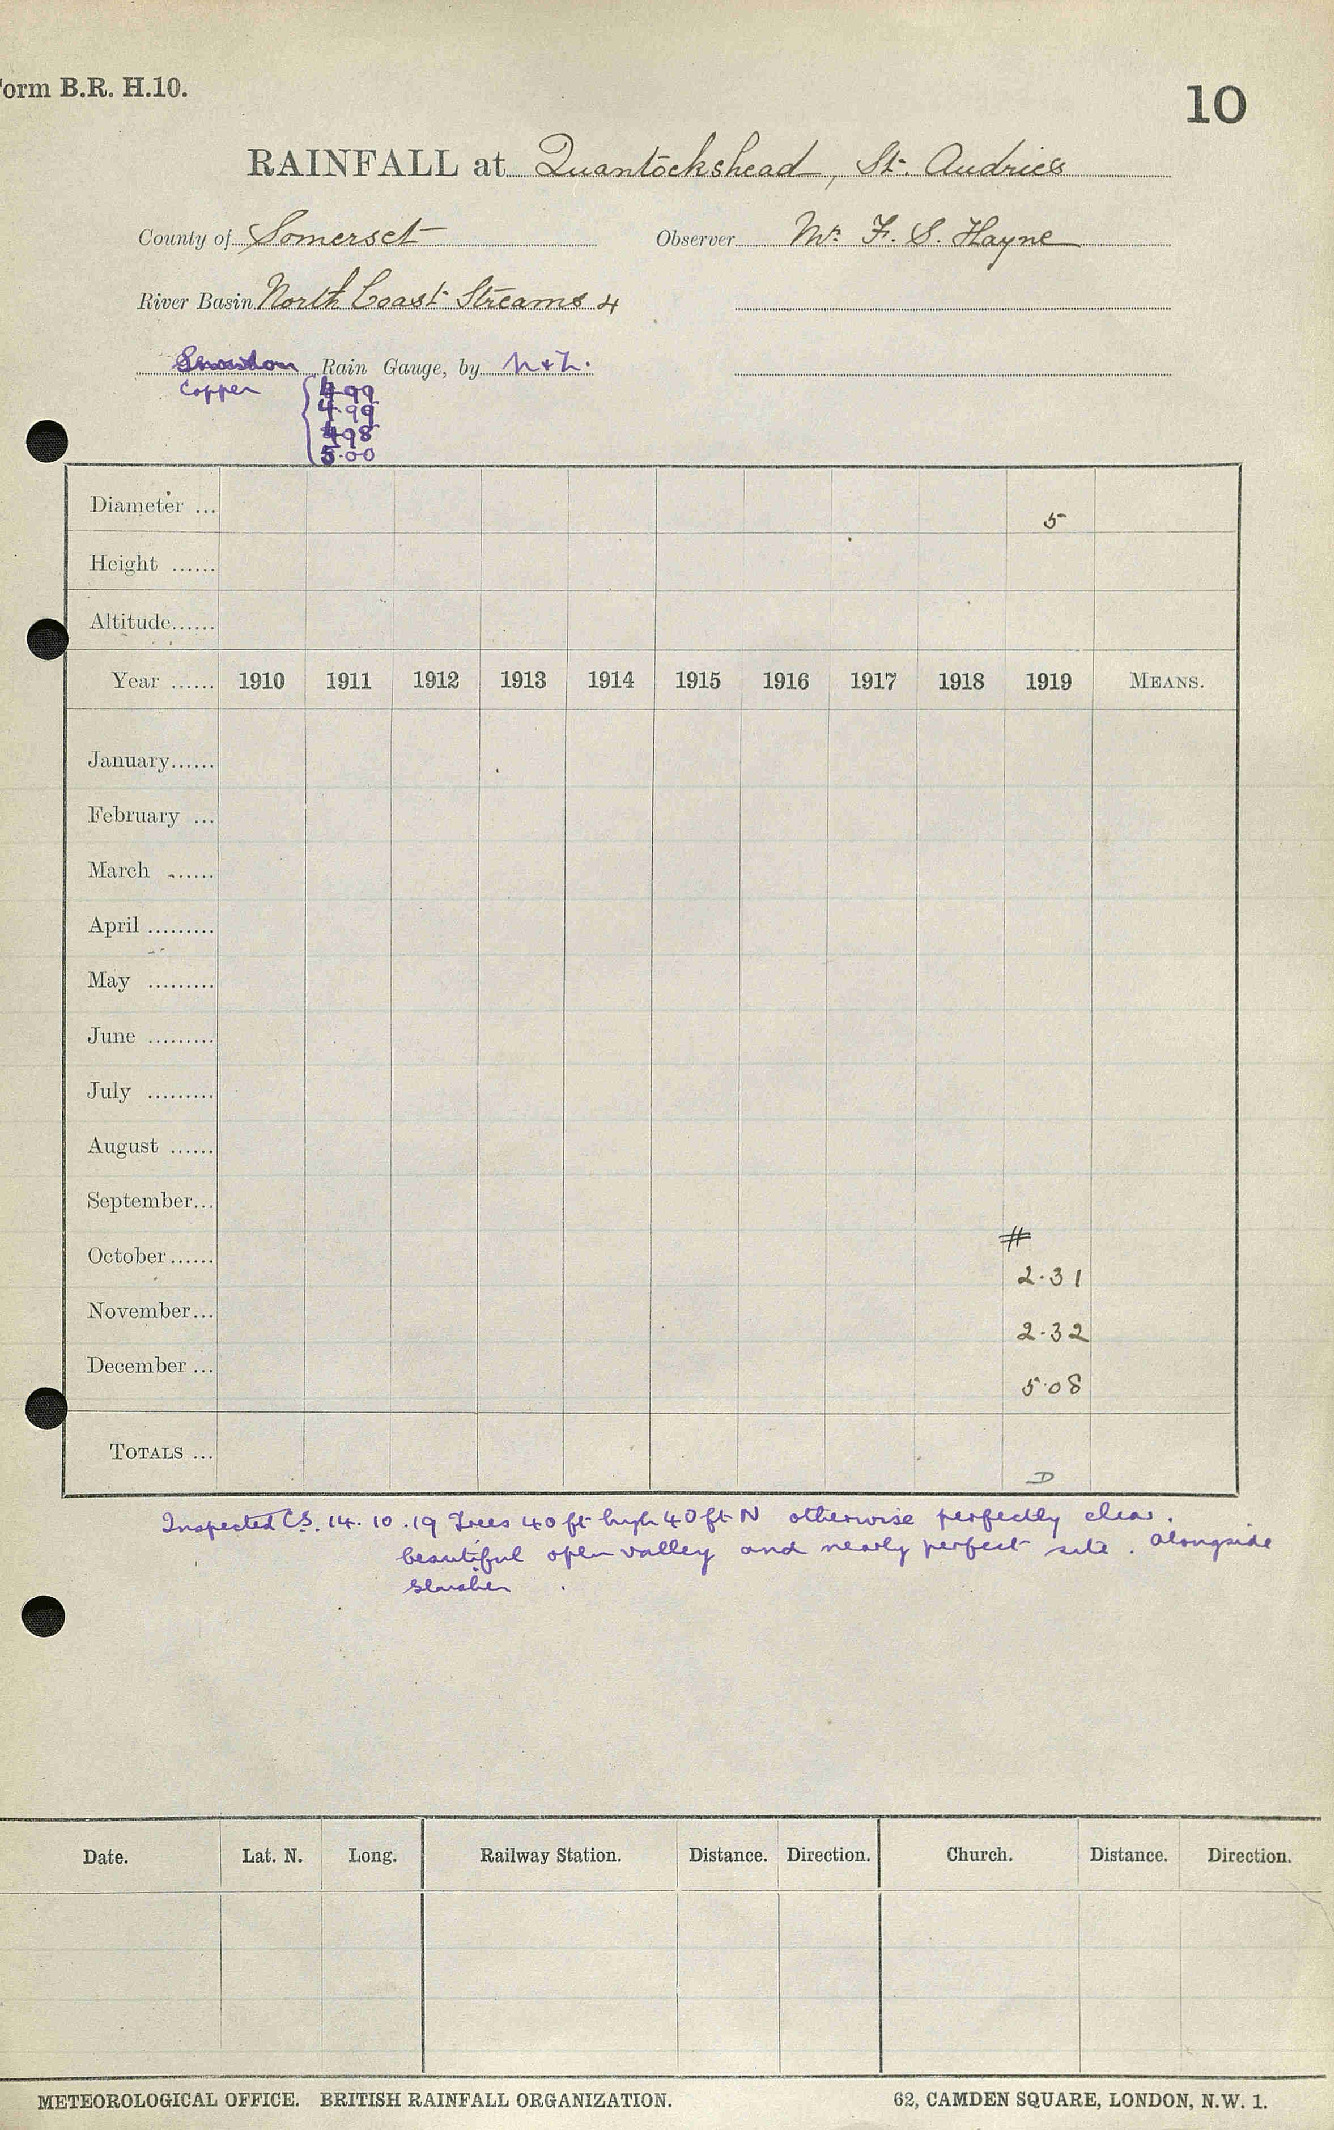 Form B.R. H.10.
10
RAINFALL at Quantockshead, St. Audries
County of Somerset Observer Mr. F. S. Hayne
River Basin North Coast Streams 4
Snowdon Rain Gauge, by N & Z.
Copper
4.99
4.99
4.98
5.00
Diameter ... 5
Height ......
Altitude......
Year ...... 1910 1911 1912 1913 1914 1915 1916 1917 1918 1919 MEANS.
January......
February ...
March ......
April .........
May .........
June .........
July .........
August ......
September...
#
October...... 2.31
November... 2.32
December ... 5.08
TOTALS ... D
Inspected C.S. 14.10.19 Trees 40 ft high 40 ft N otherwise perfectly clear.
beautiful open valley and nearly perfect site. alongside
Date. Lat. N. Long. Railway Station. Distance. Direction. Church. Distance. Direction.
METEOROLOGICAL OFFICE. BRITISH RAINFALL ORGANIZATION. 62, CAMDEN SQUARE, LONDON, N.W. 1.